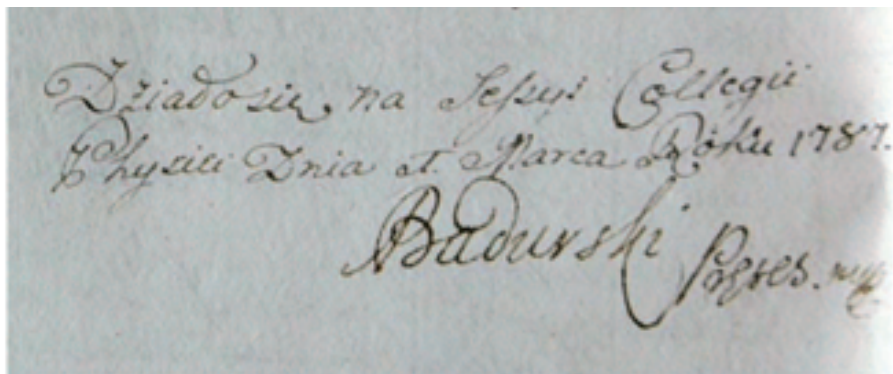 Działo się na Sessyi Collegii
Physici Dnia Marca Roku 1787.
ABadurski Prezes.